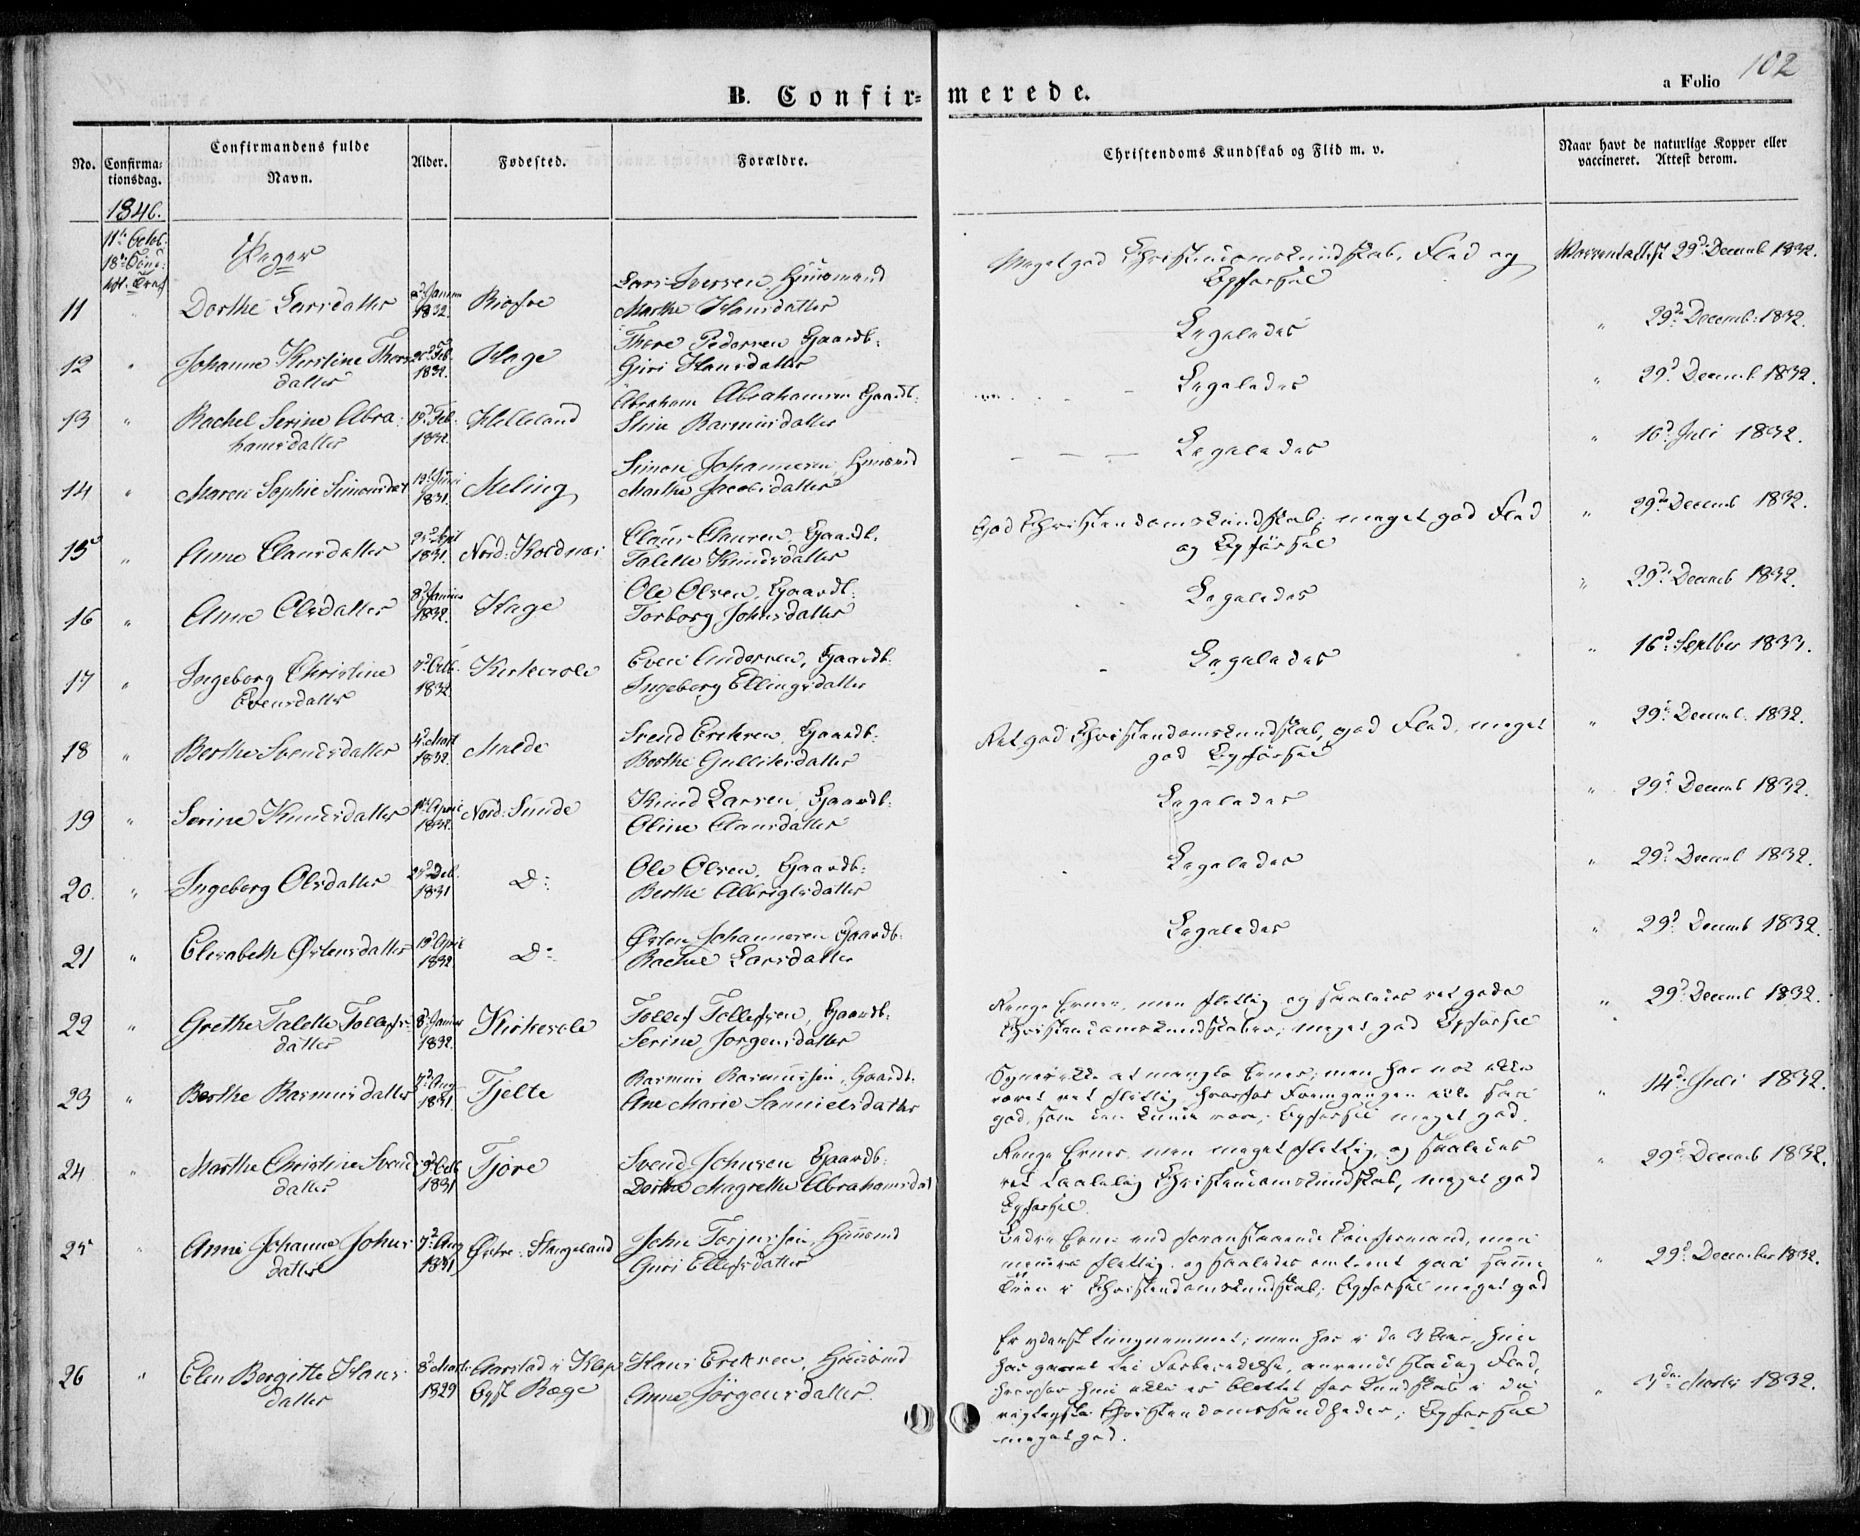 102
a Folio
B. Confir= merede.
No.
Confirma=
tionsdag.
Confirmandens fulde
Navn.
Alder.
Fødested.
Forældre.
Christendoms Kundskab og Flid m. v.
Naar havt de naturlige Kopper eller
vaccineret. Attest derom.
1846.
11te Octob:
18de Sønd:
Piger
11
Dorthe Larsdatter
Januar
1832.
Lars Iversen, Huusmand
Marthe Hansdatter
Meget god Christendomskundskab, Flid og
Opførsel
29d Decemb 1832.
12 "
Johanne Kirstine Thors
datter
20d Feb.
1832.
Hage
Thore Pedersen Gaardb:
Guri Hansdatter
Ligeledes
" 29d Decemb: 1832.
13 "
Rachel Serine Abra
hamsdatter
19d Feb.
1832.
Helleland
Abraham Abrahamsen Gaardb.
Stine Rasmusdatter
Ligeledes
" 29d Decemb. 1832.
14 "
Maren Sophie Simonsdat
Juni
1831.
Meling
Simon Johannesen, Huusmd
Marthe Jacobsdatter
Ligeledes
" 16d Juli 1832.
15 "
Anne Clausdatter
Apil
1831.
Nord: Koldnæs
Claus Clausen, Gaardb.
Talette Knudsdatter
God Christendomskundskab; meget god Flid
og Opførsel
" 29d Decemb 1832.
16 "
Anne Olsdatter
8d Januar
1832.
Hage
Ole Olsen, Gaardb.
Torborg Johnsdatter
Ligeledes
" 29d Decemb 1832.
17 "
Ingeborg Christine
Evensdatter
Octb.
1832
Kirkesole
Even Andersen, Gaardb.
Ingeborg Ellingsdatter
Ligeledes
" 16d Septber 1833.
18 "
Berthe Svendsdatter
4d Mart
1832.
Malde
Svend Eriksen, Gaardb.
Berthe Gullitesdatter
Ret god Christendomskundskab, god Flid, meget
god Opførsel
" 29d Decemb. 1832.
19 "
Serine Knudsdatter
April
1832.
Nord: Sunde
Knud Larsen, Gaardb:
Oline Clausdatter
Ligeledes
" 29d Decemb 1832.
20. "
Ingeborg Olsdatter
1831
D:
Ole Olsen, Gaardb:
Berthe Albrigtsdatter
Ligeledes
" 29d Decemb 1832.
21 "
Elisabeth Østensdatter
19d April
1832.
D:
Østen Johannesen Gaardb.
Rachel Larsdatter
Ligeledes
" 29d Decemb 1832.
22 "
Grethe Talette Tollefs
datter
8d Januar
1832.
Kirkesole
Tollef Tollefsen, Gaardb:
Serine Jørgensdatter
Ringe Evner, men flittig og saaledes ret gode
Christendomskundskaber; meget god Opførsel
" 29d Decemb 1832.
23 "
Berthe Rasmusdatter
7d Aug
1831.
Tjelte
Rasmus Rasmussen, Gaardb.
Ane Marie Samuelsdatter
Synes ikke at mangle Evner; men har not ikke
været ret flittig, hvorfor Fremgangen ikke saa
god, som den kunde være; Opførsel meget god.
" 14d Juli 1832.
24 "
Marthe Christine Svends
datter
Octb
1831
Tjøre
Svend Johnsen Gaardb.
Dorthe Magrethe Abrahamsdat
Ringe Evner, men meget flittig, og saaledes
ret taalelig Christendomskundskab, meget god
Opførsel.
" 29d Decemb 1832.
25 "
Anne Johanne Johns
datter
7d Aug
1831
Østre: Stangeland
John Torjussen, Huusmd
Guri Ellefsdatter
Bedre Evner end foranstaaende Confirmand, men
mindre flittig, og saaledes omtrent paa samme
Trin i Christendomskundskab; Opførsel meget god
" 29d December 1832.
26 "
Elen Bergitte Hans
datter
8d Marts
1829
Aarstad i Klep
Opf. Bøge
Hans Eriksen, Huusmd
Anne Jørgensdatter.
Er yderst tungnemmet; men har i de 3 Aar, hun
har gaaet til Forberedelse, anvendt stadig Flid,
hvorfor hun ikke er blottet for Kundskab i de
vigtigste Christendomssandheder; Opførsel
meget god.
" 3die Marts 1832.